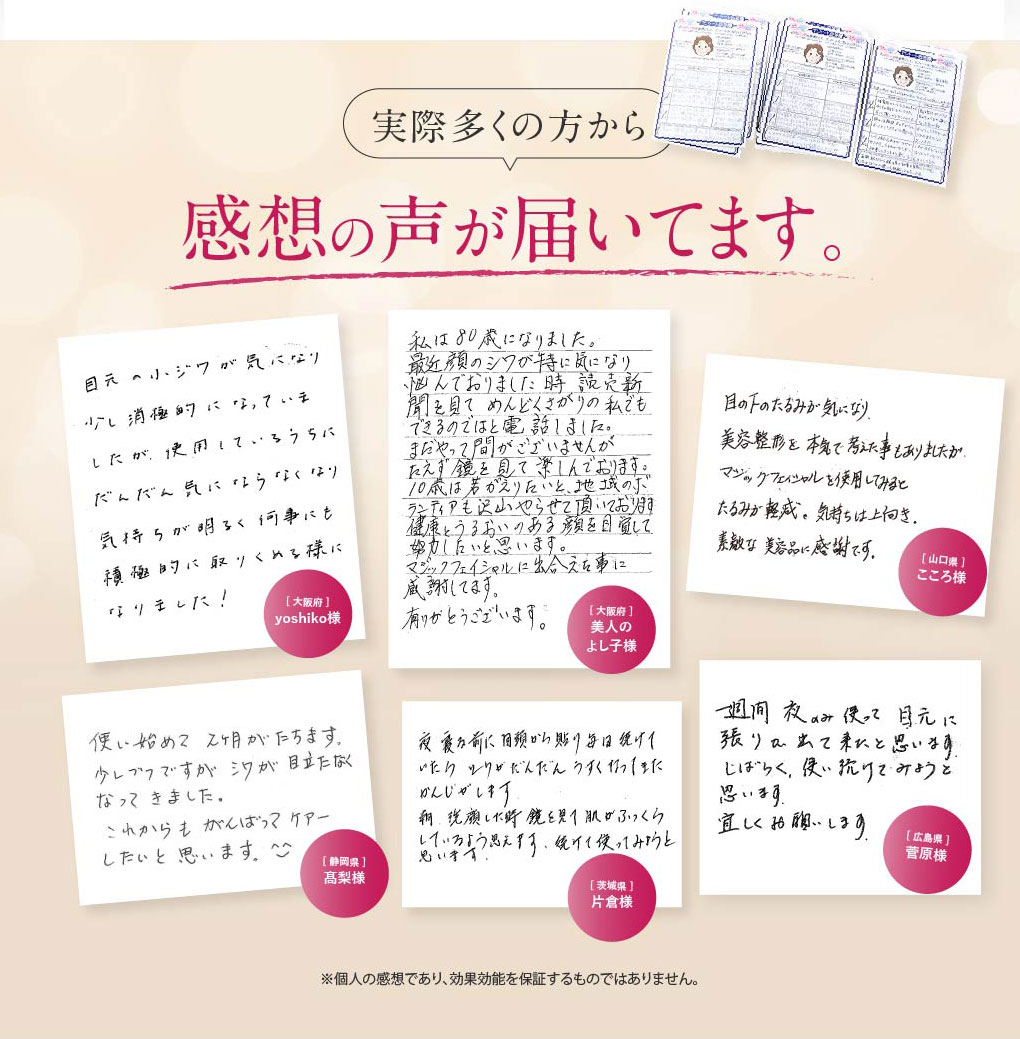 実際多くの方から
感想の声が届いてます。
目元の小ジワが気になり
少し消極的になっていま
したが、使用しているうちに
だんだん気にならなくなり
気持ちが明るく何事にも
積極的に取りくめる様に
なりました!
[大阪府]
yoshiko様
私は80歳になりました。
最近顔のシワが特に気になり
悩んでおりました時 読売新
聞を見て めんどくさがりの私でも
できるのではと電話しました。
まだやって間がございませんが
たえず鏡を見て楽しんでおります。
10歳は若がえりたいと、地域のボ
ランティアも沢山やらせて頂いております
健康とうるおいのある顔を目覚して
努力したいと思います。
マジックフェイシャルに出合えた事に
感謝してます。
有りがとうございます。
[大阪府]
美人の
よし子様
目の下のたるみが気になり
美容整形を本気で考えた事もありましたが、
マジックフェイシャルを使用してみると
たるみが軽減。気持ちは上向き。
素敵な美容品に感謝です。
[山口県]
こころ様
使い始めて 2ヶ月がたちます。
少しづつですが シワが目立たなく
なってきました。
これからも がんばってケアー
したいと思います。^^
[静岡県]
髙梨様
夜寝る前に目頭から貼り毎日続けて
いたら シワがだんだん うすくなってきた
かんじがします
朝、洗顔した時鏡を見て肌がふっくら
しているよう思えます、続けて使ってみようと
思います。
[茨城県]
片倉様
一週間 夜のみ使って 目元に
張りが出て来たと思います
しばらく、使い続けてみようと
思います
宜しくお願いします
[広島県]
菅原様
※個人の感想であり、効果効能を保証するものではありません。